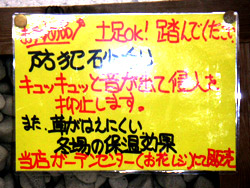 土足OK! 踏んでください
防犯砂利
キュッキュッと音が出て侵入を
抑止します。
また、草がはえにくい
冬場の保湿効果
当店ガーデンセンター(お花しょ)にて販売